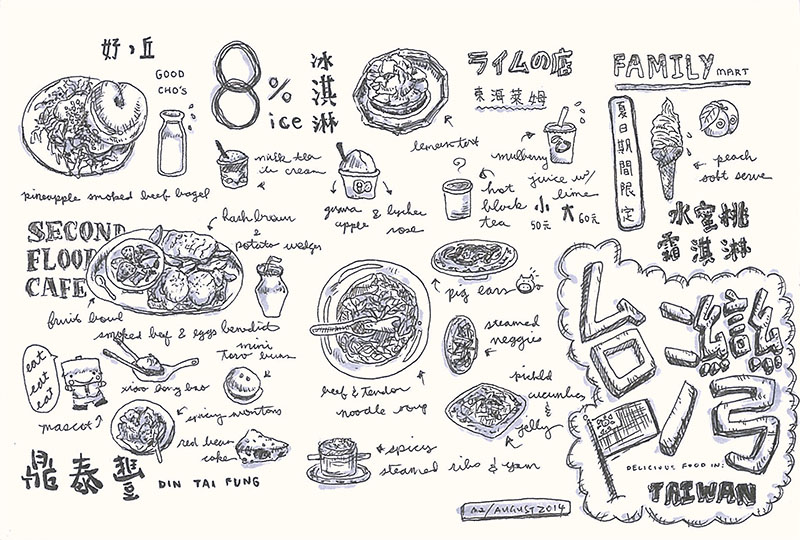 好，丘
GOOD
CHO'S
pineapple smoked beef bagel
8%
ice
冰淇淋
milk tea
ice cream
guava
apple
& lychee
rose
lemon tart
ライムの店
東海萊姆
mulberry
juice w/
lime
hot
black
tea
小
50元
大
60元
FAMILY MART
夏日期間限定
peach
soft serve
水蜜桃
霜淇淋
SECOND
FLOOR
CAFE
hash brown
&
potato wedges
fruit bowl
smoked beef & eggs benedict
eat
eat
eat
mascot?
xiao long bao
mini
taro buns
spicy wontons
red bean
cake
鼎泰豐
DIN TAI FUNG
beef & tendon
noodle soup
spicy
steamed ribs & yam
pig ears
steamed
veggies
pickled
cucumbers
&
jelly
台灣
DELICIOUS FOOD IN:
TAIWAN
02/AUGUST 2014